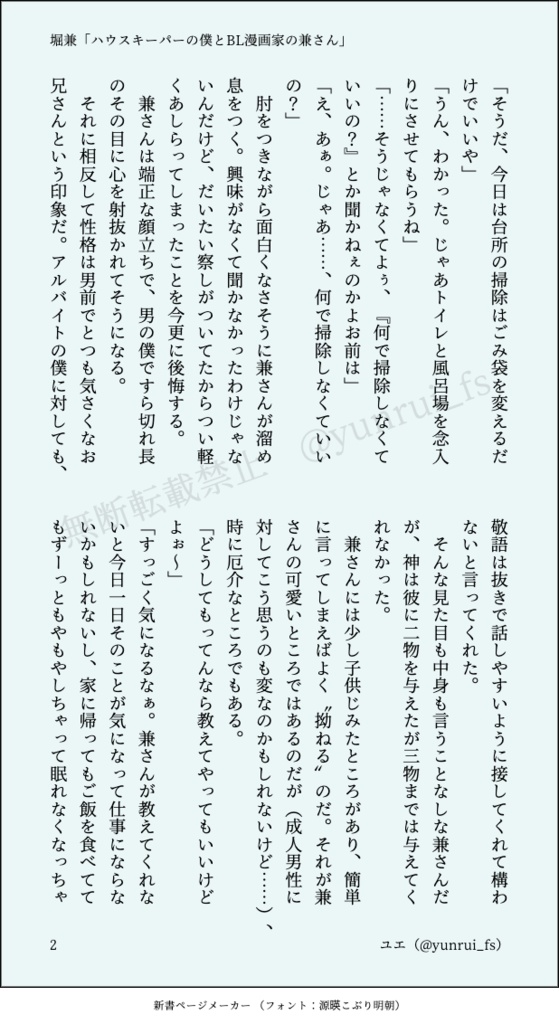 堀兼「ハウスキーパーの僕とBL漫画家の兼さん」
「そうだ、今日は台所の掃除はごみ袋を変えるだ
けでいいや」
「うん、わかった。じゃあトイレと風呂場を念入
りにさせてもらうね」
「……そうじゃなくてよぅ、『何で掃除しなくて
いいの？』とか聞かねぇのかよお前は」
「え、あぁ。じゃあ……、何で掃除しなくていい
の？」
　肘をつきながら面白くなさそうに兼さんが溜め
息をつく。興味がなくて聞かなかったわけじゃな
いんだけど、だいたい察しがついてたからつい軽
くあしらってしまったことを今更に後悔する。
　兼さんは端正な顔立ちで、男の僕ですら切れ長
のその目に心を射抜かれてそうになる。
　それに相反して性格は男前でとつも気さくなお
兄さんという印象だ。アルバイトの僕に対しても、
敬語は抜きで話しやすいように接してくれて構わ
ないと言ってくれた。
　そんな見た目も中身も言うことなしな兼さんだ
が、神は彼に二物を与えたが三物までは与えてく
れなかった。
　兼さんには少し子供じみたところがあり、簡単
に言ってしまえばよく〝拗ねる〟のだ。それが兼
さんの可愛いところではあるのだが（成人男性に
対してこう思うのも変なのかもしれないけど……）、
時に厄介なところでもある。
「どうしてもってんなら教えてやってもいいけど
よぉ～」
「すっごく気になるなぁ。兼さんが教えてくれな
いと今日一日そのことが気になって仕事にならな
いかもしれないし、家に帰ってもご飯を食べてて
もずーっともやもやしちゃって眠れなくなっちゃ
無断転載禁止　@yunrui_fs
2
ユエ（@yunrui_fs）
新書ページメーカー （フォント：源暎こぶり明朝）